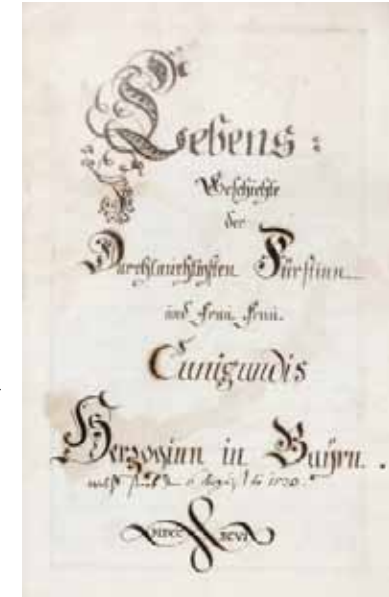 Lebens:
Geschichte
der
Durchlauchtigsten Fürstinn
und Frau Frau
Cunigundis
Herzoginn in Baÿrn.
1520.
MDCC XCVI